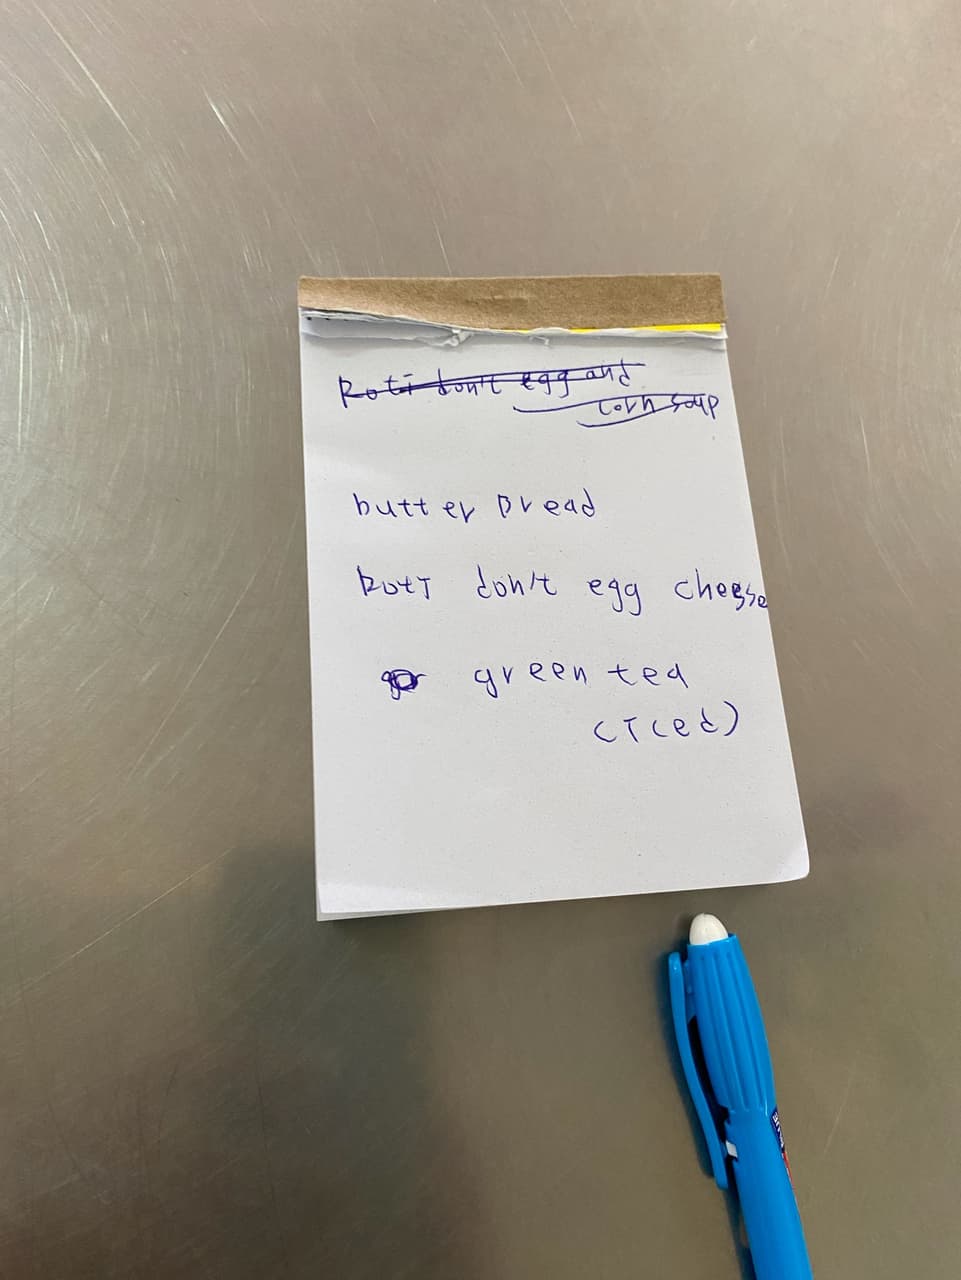 Roti don't egg and
corn soup
butter Bread
Roti don't egg cheese
green tea
(Iced)